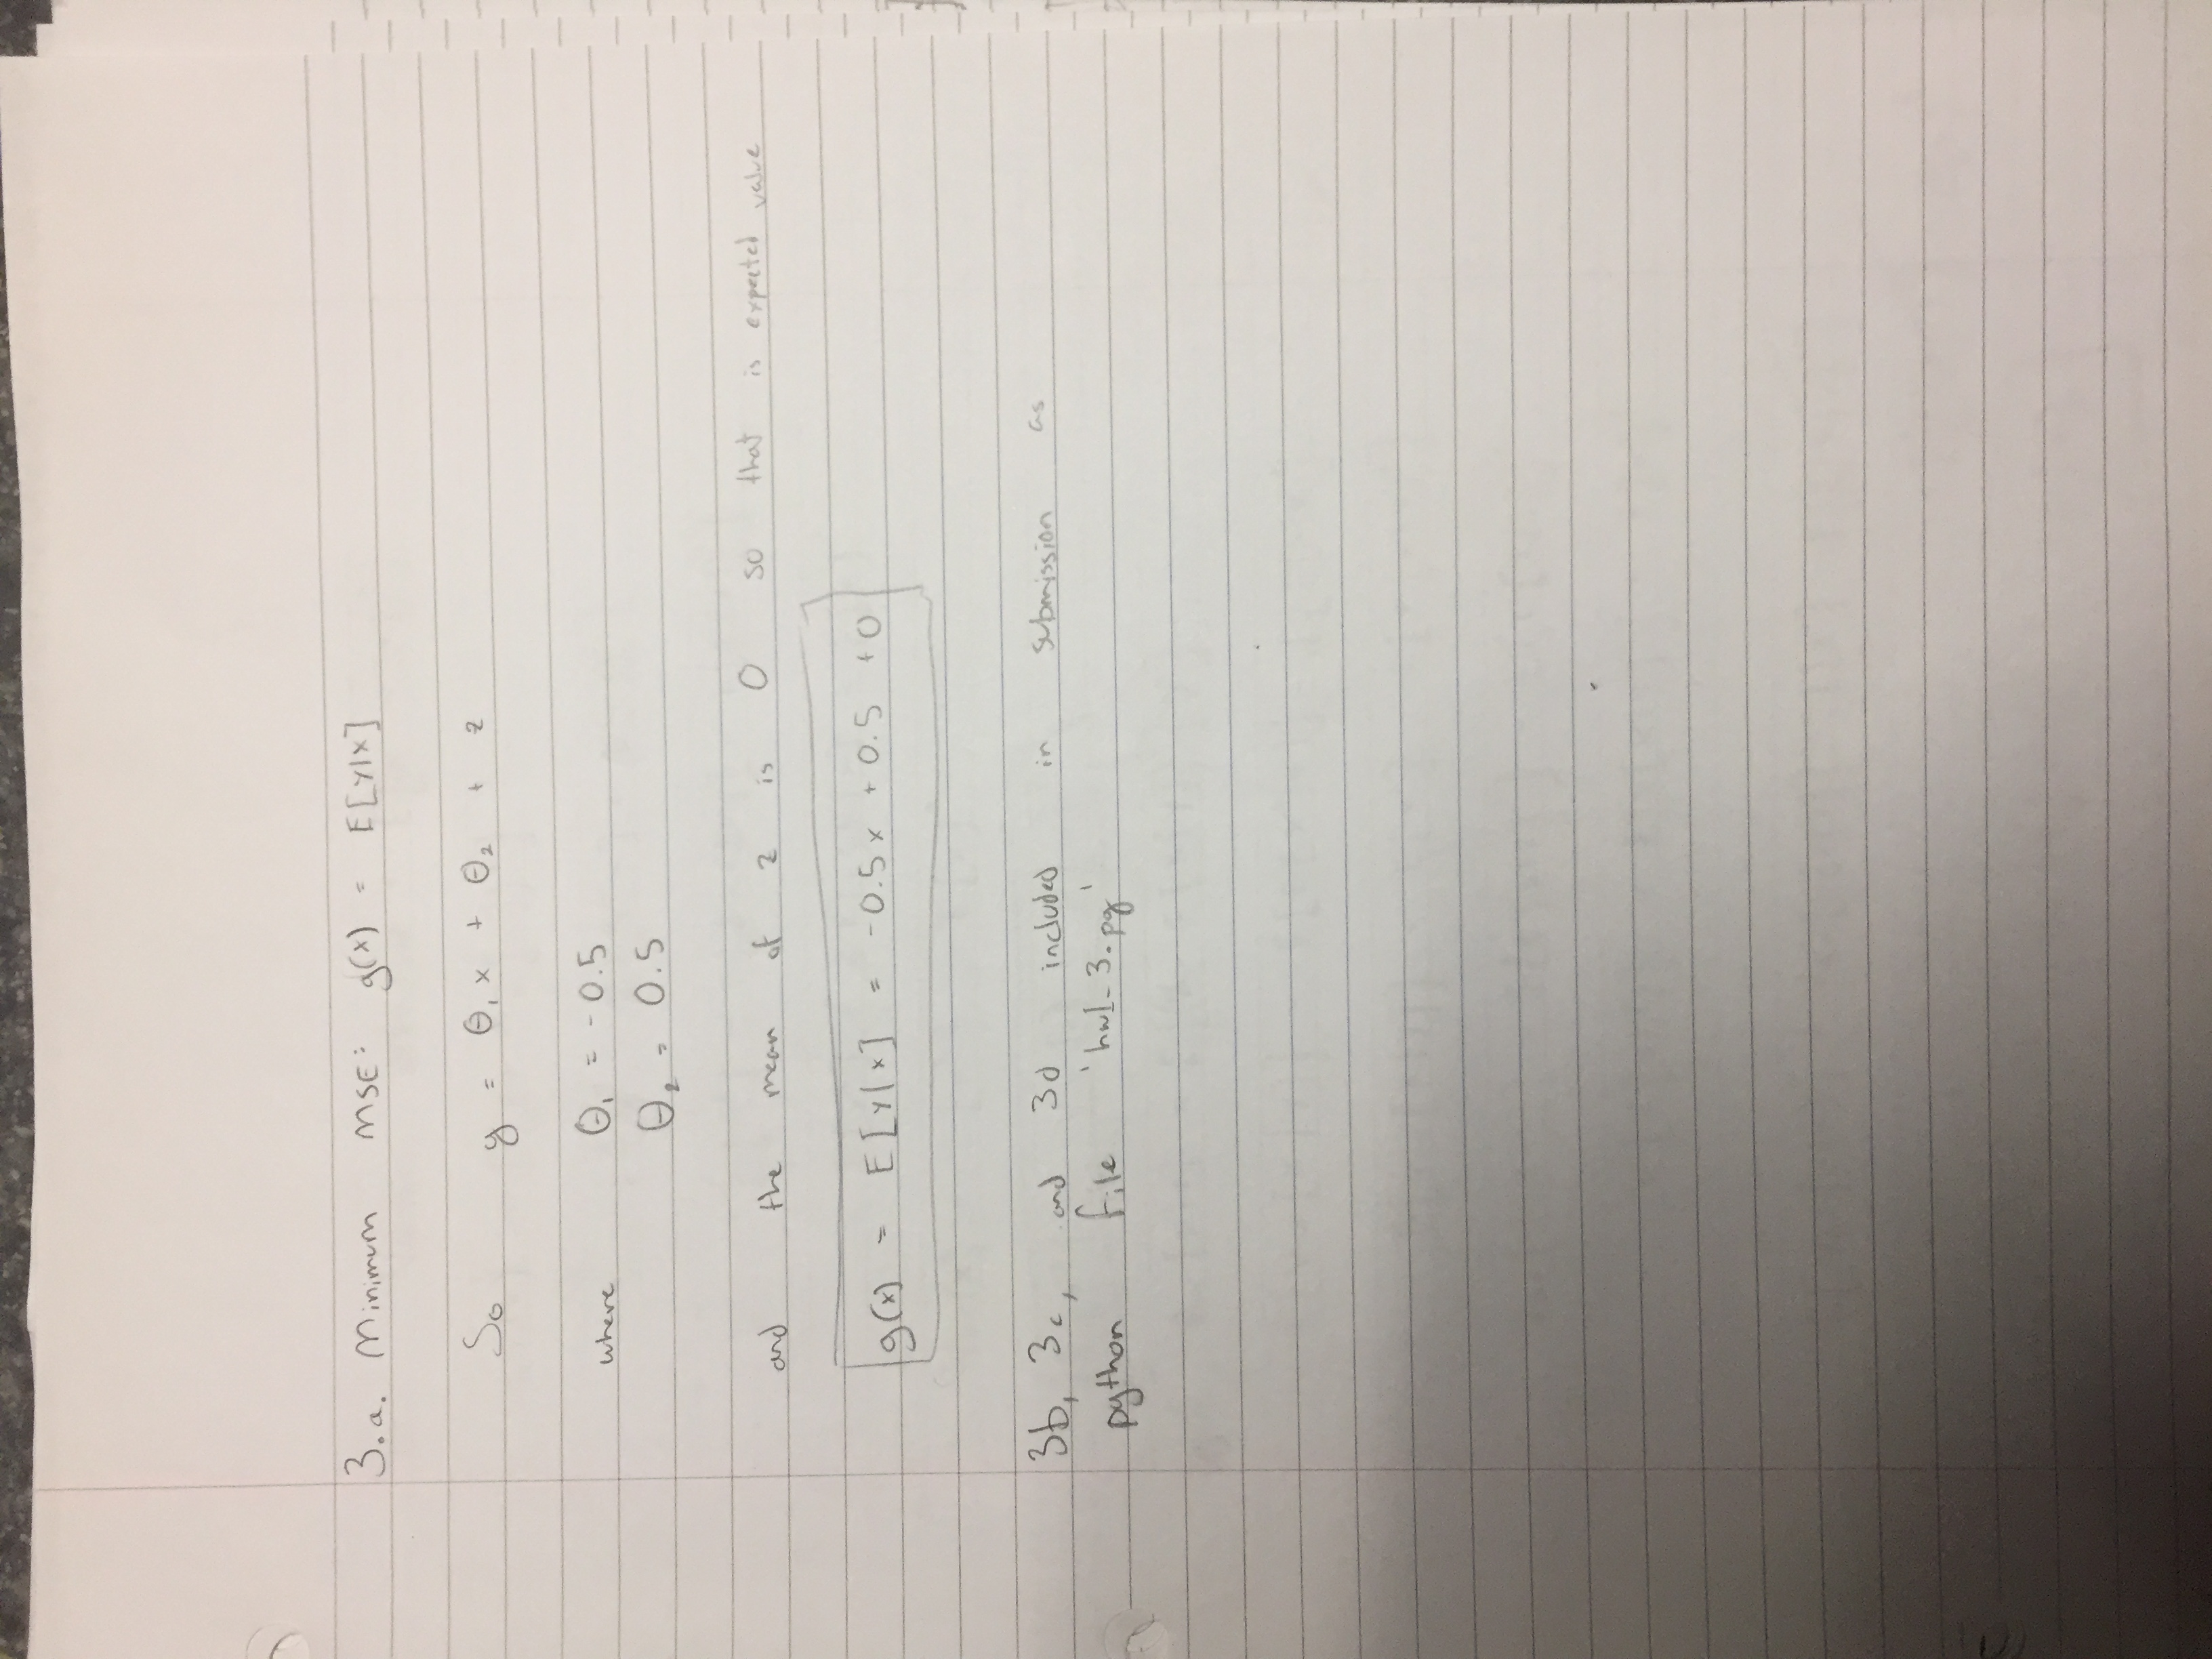 3.a. Minimum MSE: g(x) = E[Y|X]
So y = θ₁x + θ₂ + z
where θ₁ = -0.5
θ₂ = 0.5
and the mean of z is 0 so that is expected value
g(x) = E[Y|X] = -0.5x + 0.5 + 0
3b, 3c, and 3d included in submission as
python file 'hw1_3.py'